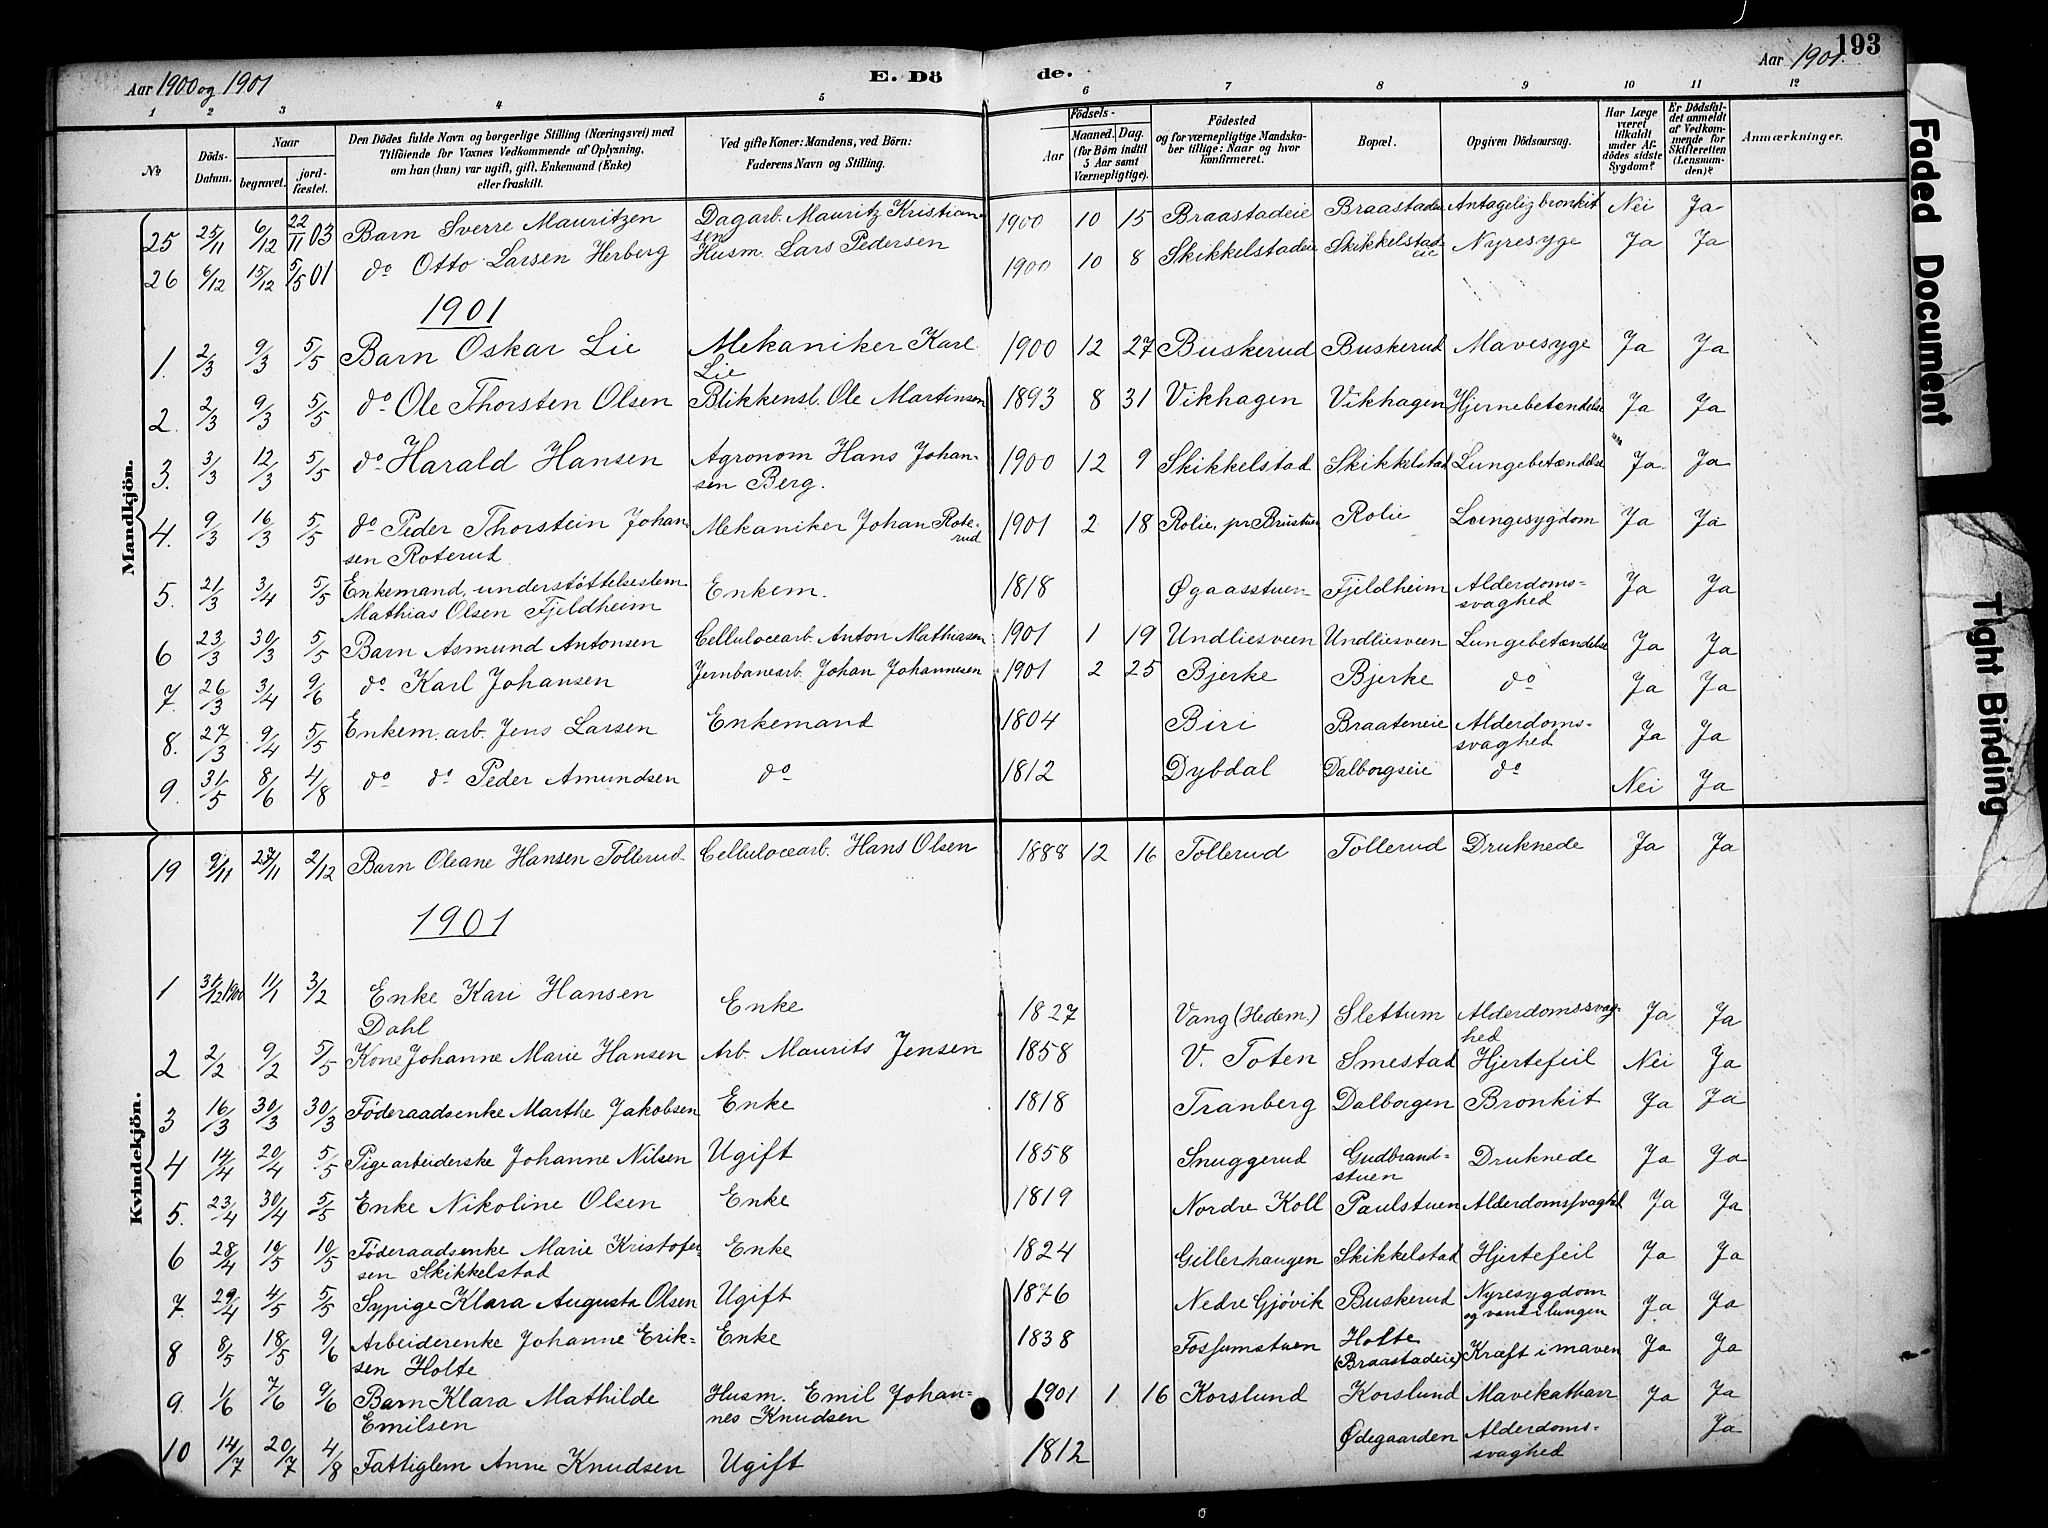 193
Aar 1900 og 1901
E. Dö
de.
Aar 1901.
1 2 3 4 5 6 7 8 9 10 11 12
No
Döds-Datum.
Naar
begravet.
jord-fæstet.
Den Dödes fulde Navn og borgerlige Stilling (Næringsvei) med
Tilföiende for Voxnes Vedkommende af Oplysning,
om han (hun) var ugift, gift, Enkemand (Enke)
eller fraskilt.
Ved gifte Koner: Mandens, ved Börn:
Faderens Navn og Stilling.
Födsels-
Aar
Maaned. Dag.
(for Börn indtil
5 Aar samt
Værnepligtige).
Födested
og for værnepligtige Mandska-
ber tillige: Naar og hvor
konfirmeret.
Bopæl.
Opgiven Dödsaarsag.
Har Læge
været
tilkaldt
under Af-
dödes sidste
Sygdom?
Er Dödsfal-
det anmeldt
af Vedkom-
mende for
Skifteretten
(Lensman-
den)?
Anmærkninger.
Mandkjön.
25 25/11 6/12 22/11 03 Barn Sverre Mauritzen Dagarb. Mauritz Kristian-
sen 1900 10 15 Braastadeie Braastadeie Antagelig bronkit Nei Ja
26 6/12 15/12 5/5 01 do Otto Larsen Herberg Husm. Lars Pedersen 1900 10 8 Skikkelstadeie Skikkelstad-
eie Nyresyge Ja Ja
1901
1. 2/3 9/3 5/5 Barn Oskar Lie Mekaniker Karl
Lie 1900 12 27 Buskerud Buskerud Mavesyge Ja Ja
2. 2/3 9/3 5/5 do Ole Thorsten Olsen Blikkensl. Ole Martinsen 1893 8 31 Vikhagen Vikhagen Hjernebetændelse Ja Ja
3. 3/3 12/3 5/5 do Harald Hansen Agronom Hans Johan-
sen Berg. 1900 12 9 Skikkelstad Skikkelstad Lungebetændelse Ja Ja
4. 9/3 16/3 5/5 do Peder Thorstein Johan-
sen Roterud Mekaniker Johan Rote-
rud 1901 2 18 Rolie, pr Brustuen Rolie Lungesygdom Ja Ja
5. 21/3 3/4 5/5 Enkemand, understöttelseslem
Mathias Olsen Fjeldheim Enkem. 1818 Øgaasstuen Fjeldheim Alderdoms-
svaghed Ja Ja
6 23/3 30/3 5/5 Barn Asmund Antonsen Cellulocearb. Anton Mathiasen 1901 1 19 Undliesveen Undliesveen Lungebetændelse Ja Ja
7. 26/3 3/4 9/6 do Karl Johansen Jernbanearb. Johan Johannesen 1901 2 25 Bjerke Bjerke do Ja Ja
8. 27/3 9/4 5/5 Enkem. arb. Jens Larsen Enkemand 1804 Biri Braateneie Alderdoms-
svaghed Ja Ja
9. 31/5 8/6 4/8 do do Peder Amundsen do 1812 Dybdal Dalborgseie do Nei Ja
Kvindekjön.
19 9/11 23/11 2/12 Barn Oleane Hansen Tollerud Cellulocearb. Hans Olsen 1888 12 16 Tollerud Tollerud Druknede Ja Ja
1901
1 31/12 1900 11/1 3/2 Enke Kari Hansen
Dahl Enke 1827 Vang (Hedem.) Slettum Alderdomssvag-
hed Ja Ja
2 2/2 9/2 5/5 Kone Johanne Marie Hansen Arb. Maurits Jensen 1858 V. Toten Smestad Hjertefeil Nei Ja
3 16/3 30/3 30/3 Föderaadsenke Marthe Jakobsen Enke 1818 Tranberg Dalborgen Bronkit Ja Ja
4 14/4 20/4 5/5 Pige arbeiderske Johanne Nilsen Ugift 1858 Snuggerud Gudbrand-
stuen Druknede Ja Ja
5. 23/4 30/4 5/5 Enke Nikoline Olsen Enke 1819 Nordre Koll Paulstuen Alderdomssvaghed Ja Ja
6 28/4 10/5 10/5 Föderaadsenke Marie Kristofer-
sen Skikkelstad Enke 1824 Gillerhaugen Skikkelstad Hjertefeil Ja Ja
7. 29/4 4/5 5/5 Sypige Klara Augusta Olsen Ugift 1876 Nedre Gjøvik Buskerud Nyresygdom
og vand i lungen Ja Ja
8 8/5 18/5 9/6 Arbeiderenke Johanne Erik-
sen Holte Enke 1838 Fossumstuen Holte
(Braastadeie) Kræft i maven Ja Ja
9. 1/6 7/6 9/6 Barn Klara Mathilde
Emilsen Husm. Emil Johan-
nes Knudsen 1901 1 16 Korslund Korslund Mavekatharr Ja Ja
10 14/7 20/7 4/8 Fattiglem Anne Knudsen Ugift 1812 Ødegaarden Alderdoms-
svaghed Ja
Faded Document
Tight Binding